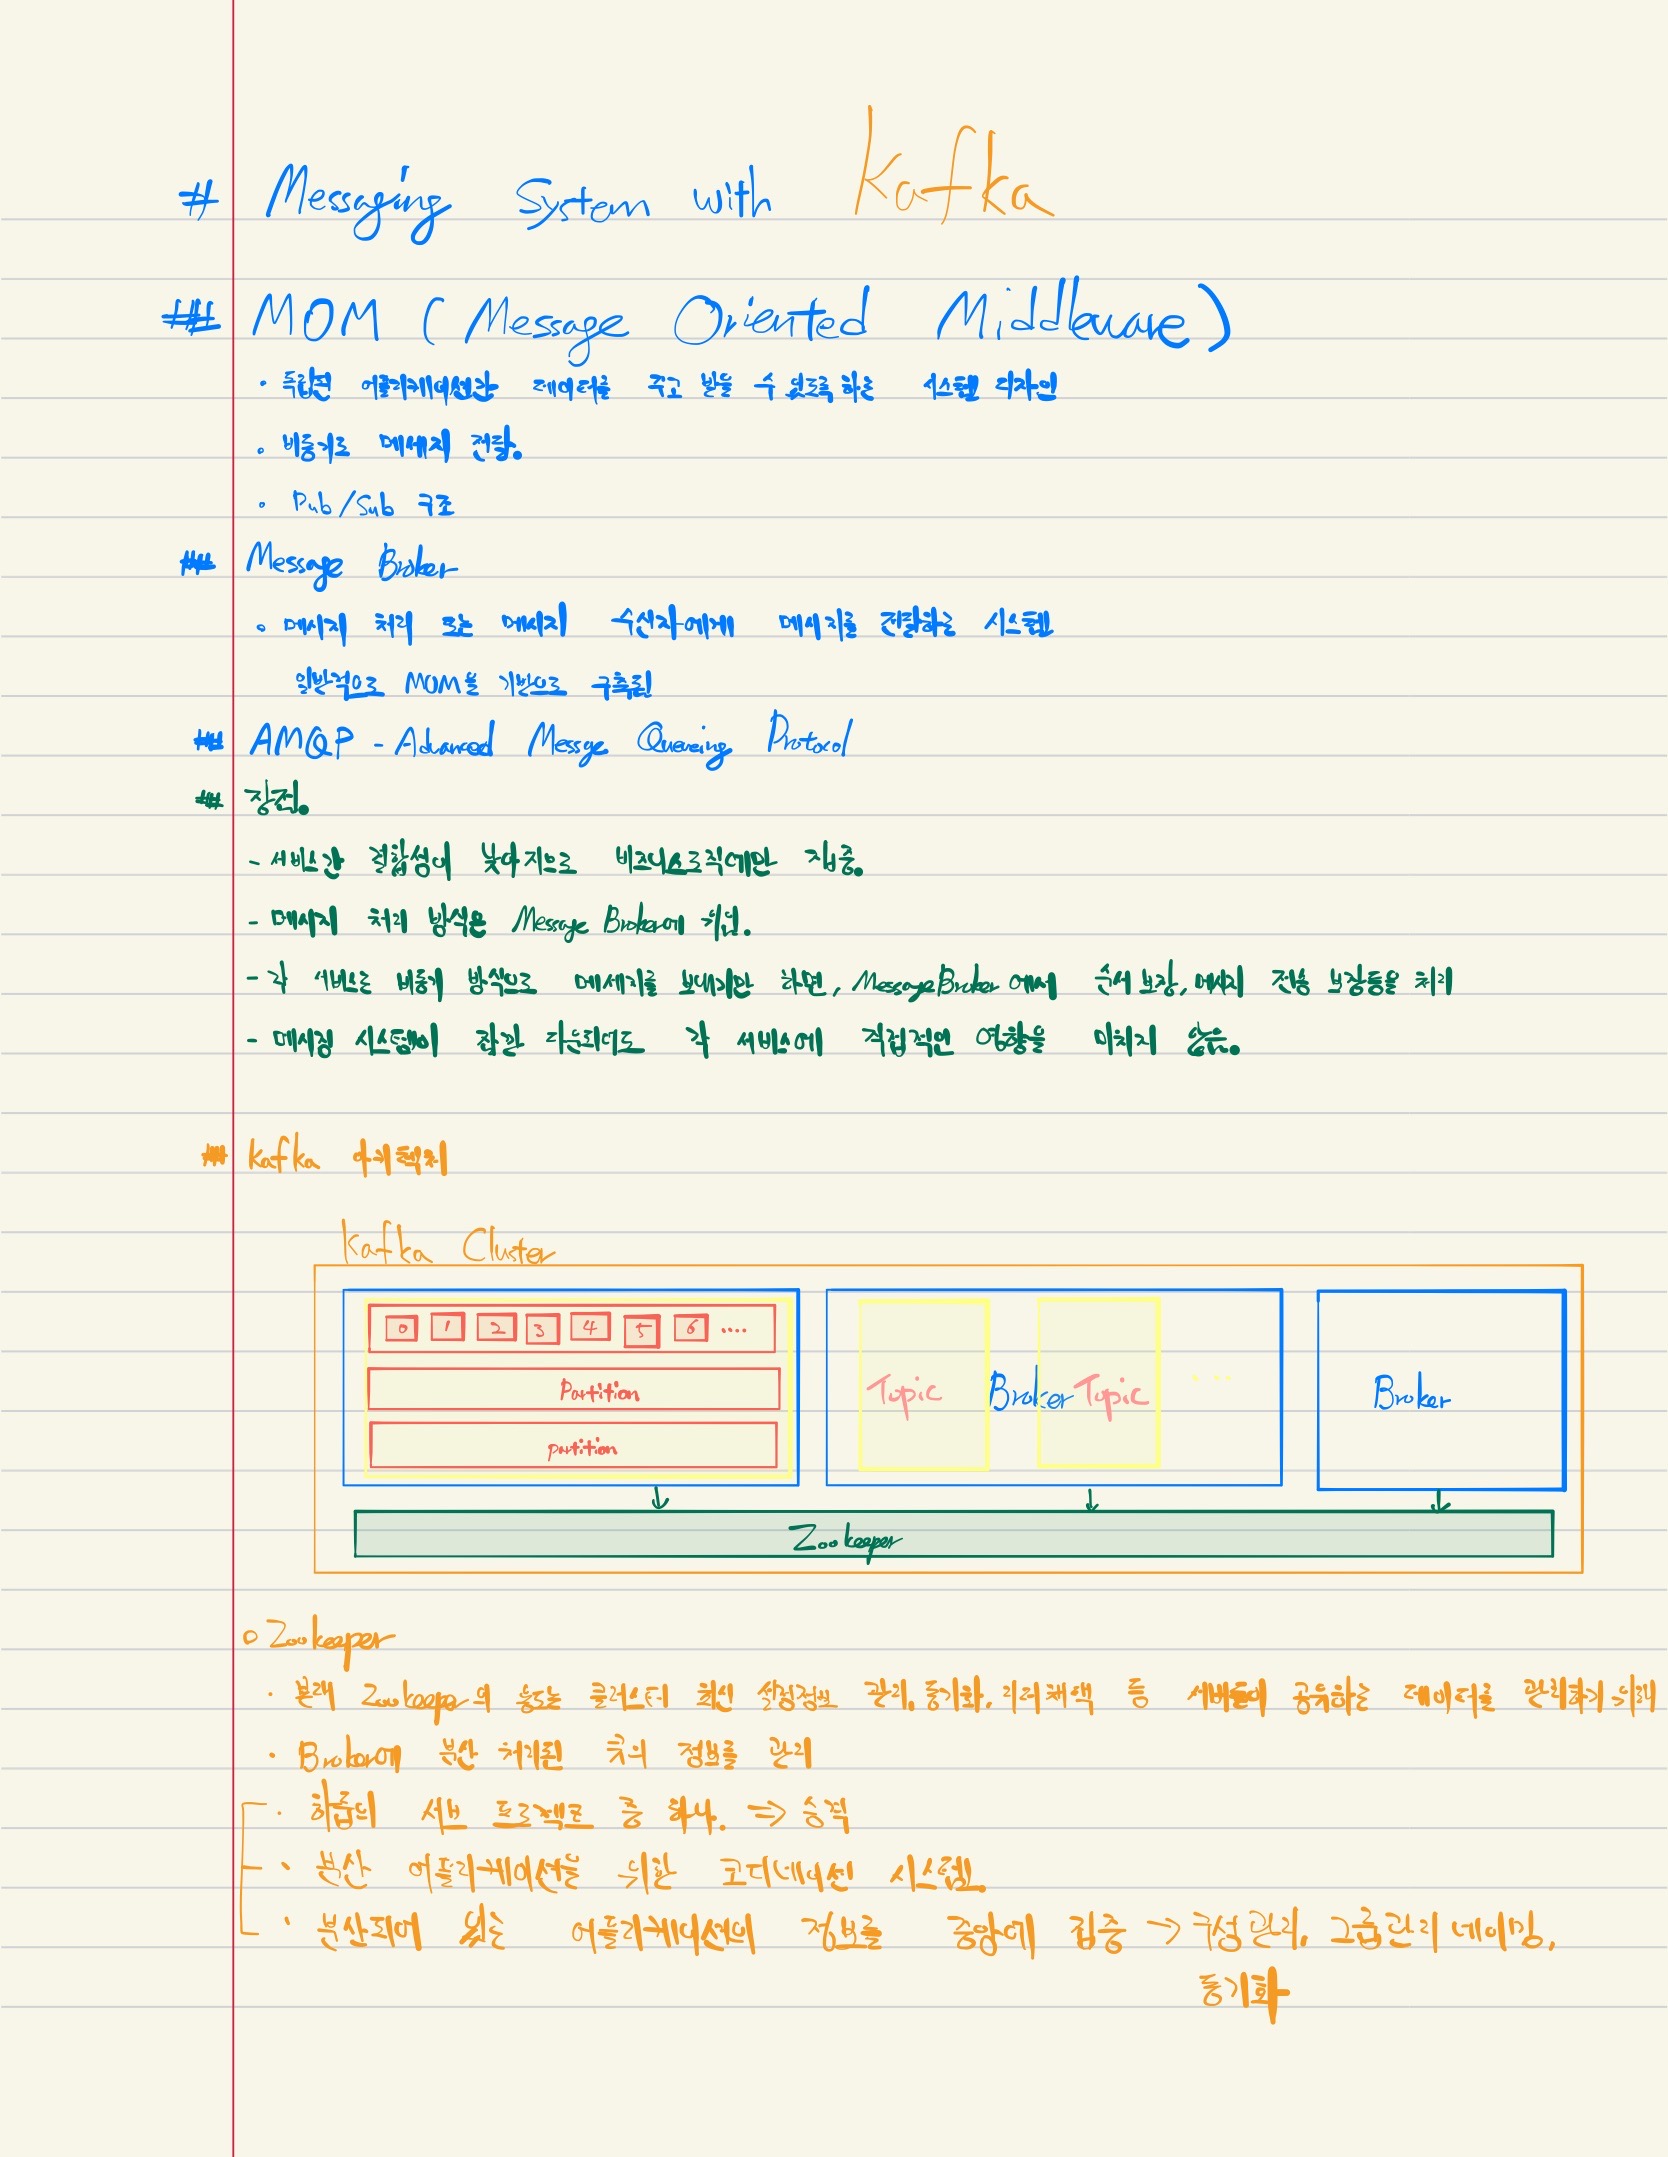 # Messaging System with Kafka
## MOM ( Message Oriented Middleware )
· 독립된 어플리케이션간 데이터를 주고 받을 수 있도록 하는 시스템 디자인
· 비동기로 메세지 전달.
· Pub/Sub 구조
## Message Broker
· 메시지 처리 또는 메시지 수신자에게 메시지를 전달하는 시스템
일반적으로 MOM을 기반으로 구축됨
## AMQP - Advanced Messge Queueing Protocol
## 장점.
- 서비스간 결합성이 낮아지므로 비즈니스로직에만 집중.
- 메시지 처리 방식은 Message Broker에 위임.
- 각 서비스는 비동기 방식으로 메세지를 보내기만 하면, Message Broker에서 순서 보장, 메시지 전송 보장등을 처리
- 메시징 시스템이 잠깐 다운되어도 각 서비스에 직접적인 영향을 미치지 않음.
## Kafka 아키텍처
Kafka Cluster
0 1 2 3 4 5 6 ....
Partition
partition
Topic Broker Topic ...
Broker
Zookeeper
○ Zookeeper
· 본래 Zookeeper의 용도는 클러스터 최신 설정정보 관리, 동기화, 리더채택 등 서버들이 공유하는 데이터를 관리하기 위해
· Broker에 분산 처리된 큐의 정보를 관리
· 하둡의 서브 프로젝트 중 하나. => 승격
· 분산 어플리케이션을 위한 코디네이션 시스템.
· 분산되어 있는 어플리케이션의 정보를 중앙에 집중 → 구성관리, 그룹관리 네이밍,
동기화